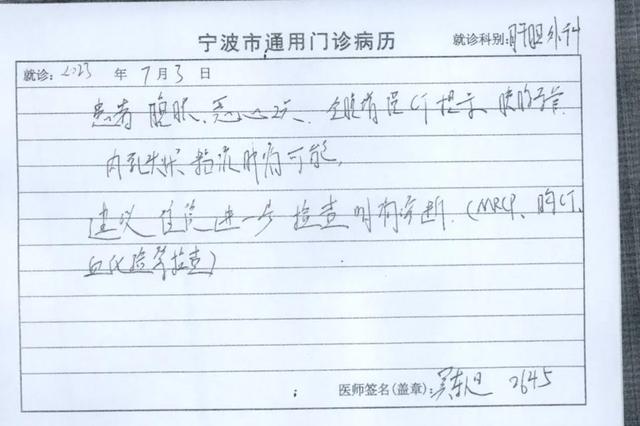 宁波市通用门诊病历 就诊科别:肝胆外科
就诊:2023年7月3日
患者腹胀、恶心2天。全腹增强CT提示胰胆管
内乳头状粘液肿瘤可能,
建议住院进一步检查明确诊断.(MRCP、胸CT、
血化验等检查)
医师签名(盖章): 2645